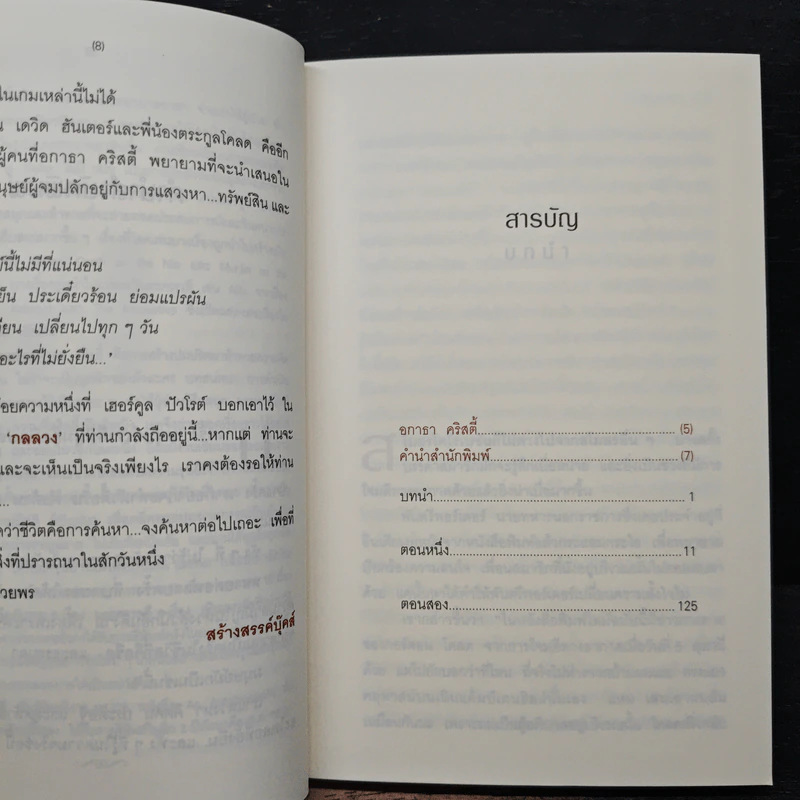 (8)
ในเกมเหล่านี้ไม่ได้
เดวิด ฮันเตอร์และพี่น้องตระกูลโคลด คืออีก
ผู้คนที่อกาธา คริสตี้ พยายามที่จะนำเสนอใน
นุษย์ผู้จมปลักอยู่กับการแสวงหา...ทรัพย์สิน และ
นี้ไม่มีที่แน่นอน
ย็น ประเดี๋ยวร้อน ย่อมแปรผัน
วียน เปลี่ยนไปทุก ๆ วัน
อะไรที่ไม่ยั่งยืน...'
อยความหนึ่งที่ เฮอร์คูล ปัวโรต์ บอกเอาไว้ ใน
'กลลวง' ที่ท่านกำลังถืออยู่นี้...หากแต่ ท่านจะ
และจะเห็นเป็นจริงเพียงไร เราคงต้องรอให้ท่าน
...
ว่าชีวิตคือการค้นหา...จงค้นหาต่อไปเถอะ เพื่อที่
สิ่งที่ปรารถนาในสักวันหนึ่ง
วยพร
สร้างสรรค์บุ๊คส์
สารบัญ
อกาธา คริสตี้ (5)
คำนำสำนักพิมพ์ (7)
บทนำ 1
ตอนหนึ่ง 11
ตอนสอง 125